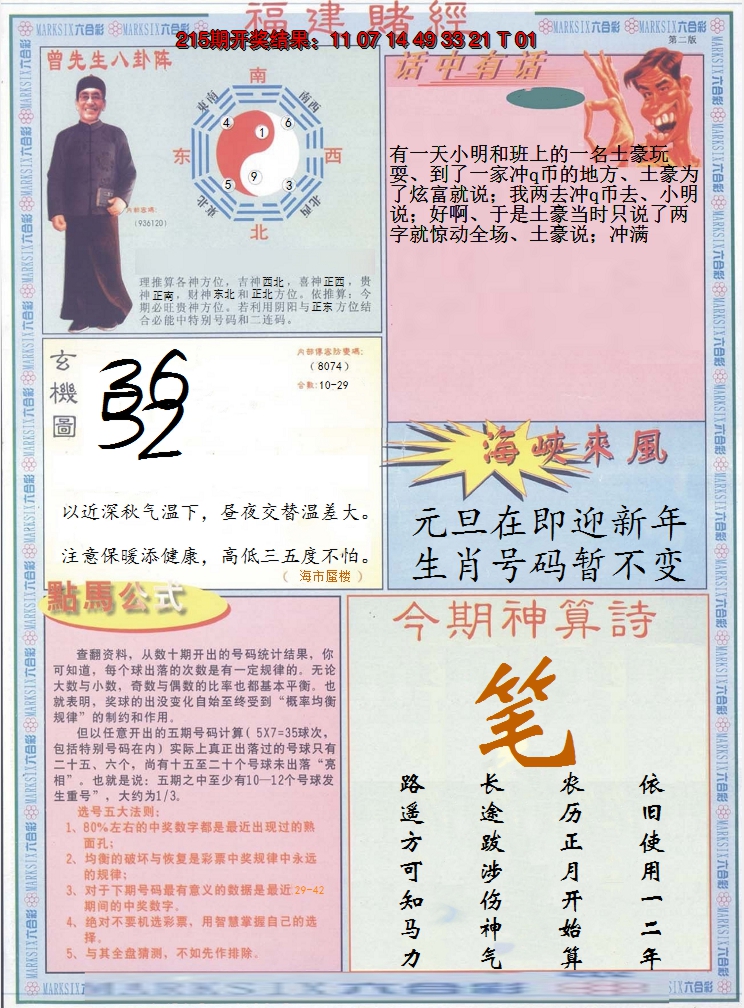 福建賭經
215期开奖结果：11 07 14 49 33 21 T 01
第二版
曾先生八卦阵
南
东南
南西
4
1
6
东
西
5
9
3
東北
北西
北
内部密碼：
（936120）
理推算各神方位，吉神西北，喜神正西，贵
神正南，财神东北和正北方位。依推算：今
期必旺贵神方位。若利用阴阳与正东方位结
合必能中特别号码和二连码。
话中有话
有一天小明和班上的一名土豪玩
耍、到了一家冲q币的地方、土豪为
了炫富就说；我两去冲q币去、小明
说；好啊、于是土豪当时只说了两
字就惊动全场、土豪说；冲满
玄機圖
36
52
内部傳密防變碼：
（8074）
合数：10-29
以近深秋气温下，昼夜交替温差大。
注意保暖添健康，高低三五度不怕。
（ 海市蜃楼 ）
海峽來風
元旦在即迎新年
生肖号码暂不变
點馬公式
查翻资料，从数十期开出的号码统计结果，你
可知道，每个球出落的次数是有一定规律的。无论
大数与小数，奇数与偶数的比率也都基本平衡。也
就表明，奖球的出没变化自始至终受到“概率均衡
规律”的制约和作用。
但以任意开出的五期号码计算（5X7=35球次，
包括特别号码在内）实际上真正出落过的号球只有
二十五、六个，尚有十五至二十个号球未出落“亮
相”。也就是说：五期之中至少有10—12个号球发
生重号”，大约为1/3。
选号五大法则：
1、80%左右的中奖数字都是最近出现过的熟
面孔；
2、均衡的破坏与恢复是彩票中奖规律中永远
的规律；
3、对于下期号码最有意义的数据是最近29-42
期间的中奖数字。
4、绝对不要机选彩票，用智慧掌握自己的选
择。
5、与其全盘猜测，不如先作排除。
今期神算詩
笔
路遥方可知马力
长途跋涉伤神气
农历正月开始算
依旧使用一二年
MARKSIX六合彩